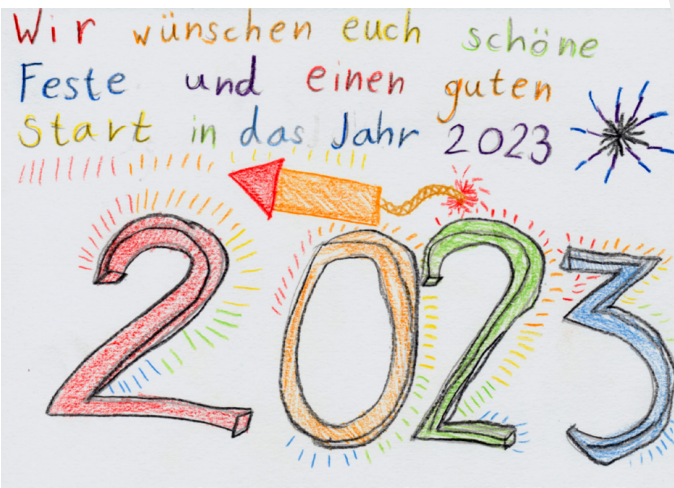 Wir wünschen euch schöne
Feste und einen guten
Start in das Jahr 2023
2023